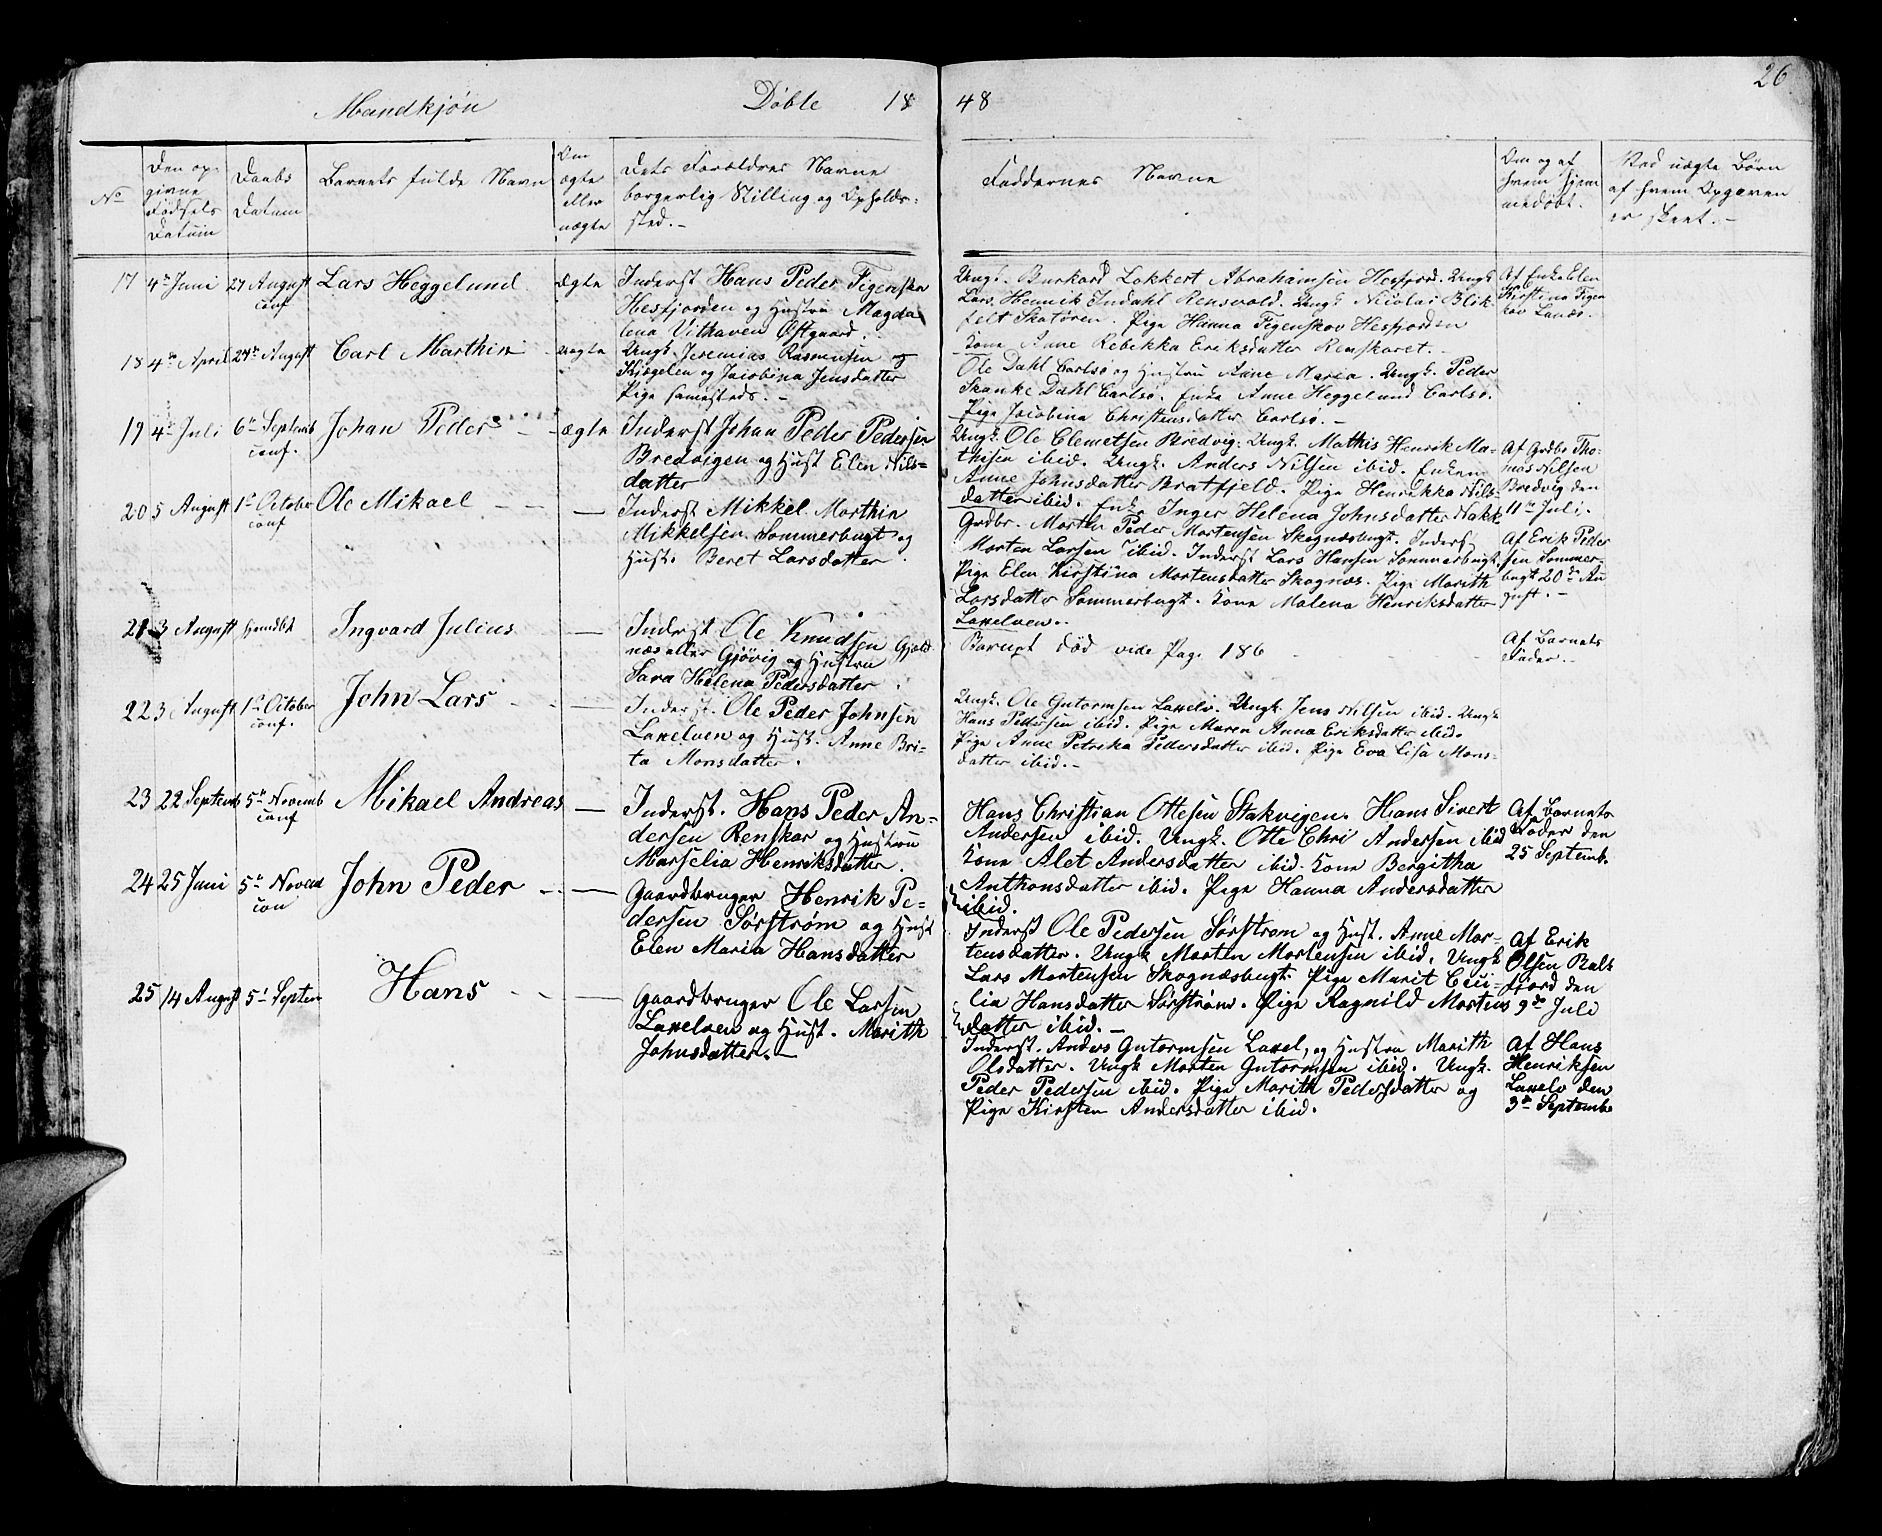 26
Mandkjøn Døbte 18 48
No
Den op-
givne
Fødsels
Datum
Daabs
Datum
Barnets fulde Navn
Om
ægte
eller
uægte
Dets Forældres Navne
borgerlig Stilling og Opholds-
sted.-
Faddernes Navne
Om og af
hvem hjem
medøbt.
Ved uægte Børn
af hvem Opgaven
er skeet.-
17 4de Juni 27 August
conf
Lars Heggelund
ægte
Inderst Hans Peder Figenskov
Hesfjorden og Hustru Magda
lena Vithaven Østgaard.
Ungk. Burkard Lokkert Abrahamsen Hesfjord. Ungk
Lars Henrik Indahl Rensvold. Ungk Nicolai Blik-
felt Skatøren. Pige Hanna Figenskov Hesfjorden
Kone Anne Rebekka Eriksdatter Renskaret.-
Af Enke Elen
Kirstina Figen
kov Lanæs.
18 4de April 27de August
Carl Marthin
uægte
Ungk. Jeremias Rasmusen og
og Jacobina Jensdatter
Pige samesteds.-
Ole Dahl Carlsø og Hustru Anne Maria. Ungk. Peder
Skanke Dahl Carlsø. Enke Anne Heggelund Carlsø.
Pige Jacobina Christensdatter Carlsø.-
19 4de Juli 6te Septemb
conf.
Johan Peder
ægte
Inderst Johan Peder Pedersen
Bredvigen og Hust Elen Nils=
datter
Ungk. Ole Clemetsen Bredvig. Ungk. Mathis Henrik Ma-
thisen ibid. Ungk. Anders Nilsen ibid. Enken
Anne Johnsdatter Bratfjeld. Pige Henrikka Nils-
datter ibid. Enke Inger Helena Johnsdatter
Af Grdbr Tho-
mas Nilsen
Bredvig den
11te Juli.
20 5 August 1ste October
conf
Ole Mikael - - -
Inderst Mikkel Marthin
Mikkelsen Sommerbugt og
Hust. Beret Larsdatter.
Grdbr. Morten Peder Mortensen Skognæsbugt. Inderst
Morten Larsen ibid. Inderst Lars Hansen Sommerbugt.
Pige Elen Kirstina Mortensdatter Skognæs. Pige Marith
Larsdatter Sommerbugt. Kone Malena Henriksdatter
Laxelven.
Af Erik Peder
sen Sommer-
bugt 20de Au
gust.-
21 3 August hjemdbt
Ingvard Julius -
Inderst Ole Knudsen Gjøld
næs eller Gjövig og Hustru
Sara Helena Pedersdatter.
Barnet død vide Pag. 186
Af Barnets
Fader.-
22 3 August 1ste October
conf.
John Lars - - -
Inderst. Ole Peder Johnsen
Laxelven og Hust. Anne Bri-
ta Monsdatter.
Ungk. Ole Gutormsen Laxelv. Ungk. Jens Nilsen ibid. Ungk
Hans Pedersen ibid. Pige Maren Anna Eriksdatter ibid.
Pige Anne Petrika Pedersdatter ibid. Pige Eva Lisa Mons-
datter ibid.-
23 22 Septemb 5te Novemb
conf
Mikael Andreas -
Inderst. Hans Peder An-
dersen Renskar og Hustru
Marselia Henriksdatter.
Hans Christian Ottesen Stakvigen. Hans Sivert
Andersen ibid. Ungk. Otte Chri Andersen ibid
Kone Alet Andersdatter ibid. Kone Bergitha
Anthonsdatter ibid. Pige Hanna Andersdatter
ibid.
Af Barnets
Fader den
25 Septemb.
24 25 Juni 5te Novem
con
John Peder - -
Gaardbruger Henrik Pe-
dersen Sørstrøm og Hust
Elen Maria Hansdatter
Inderst Ole Pedersen Sørstrøm og Hust. Anne Mor-
tensdatter. Ungk Morten Mortensen ibid. Ungk
Lars Mortensen Skognæsbugt. Pige Marit Ceci-
lia Hansdatter Sørstrøm. Pige Ragnild Mortens
datter ibid.-
Af Erik
Olsen Bals
fjord den
9de Juli
25 14 August 5 Septem
Hans - - -
Gaardbruger Ole Larsen
Laxelven og Hust. Marith
Johnsdatter.-
Inderst. Anders Gutormsen Laxel, og Hustru Marith
Olsdatter. Ungk Morten Gutormsen ibid. Ungk.
Peder Pedersen ibid. Pige Marith Pedersdatter og
Pige Kirsten Andersdatter ibid.
Af Hans
Henriksen
Laxelv den
3de Septembe